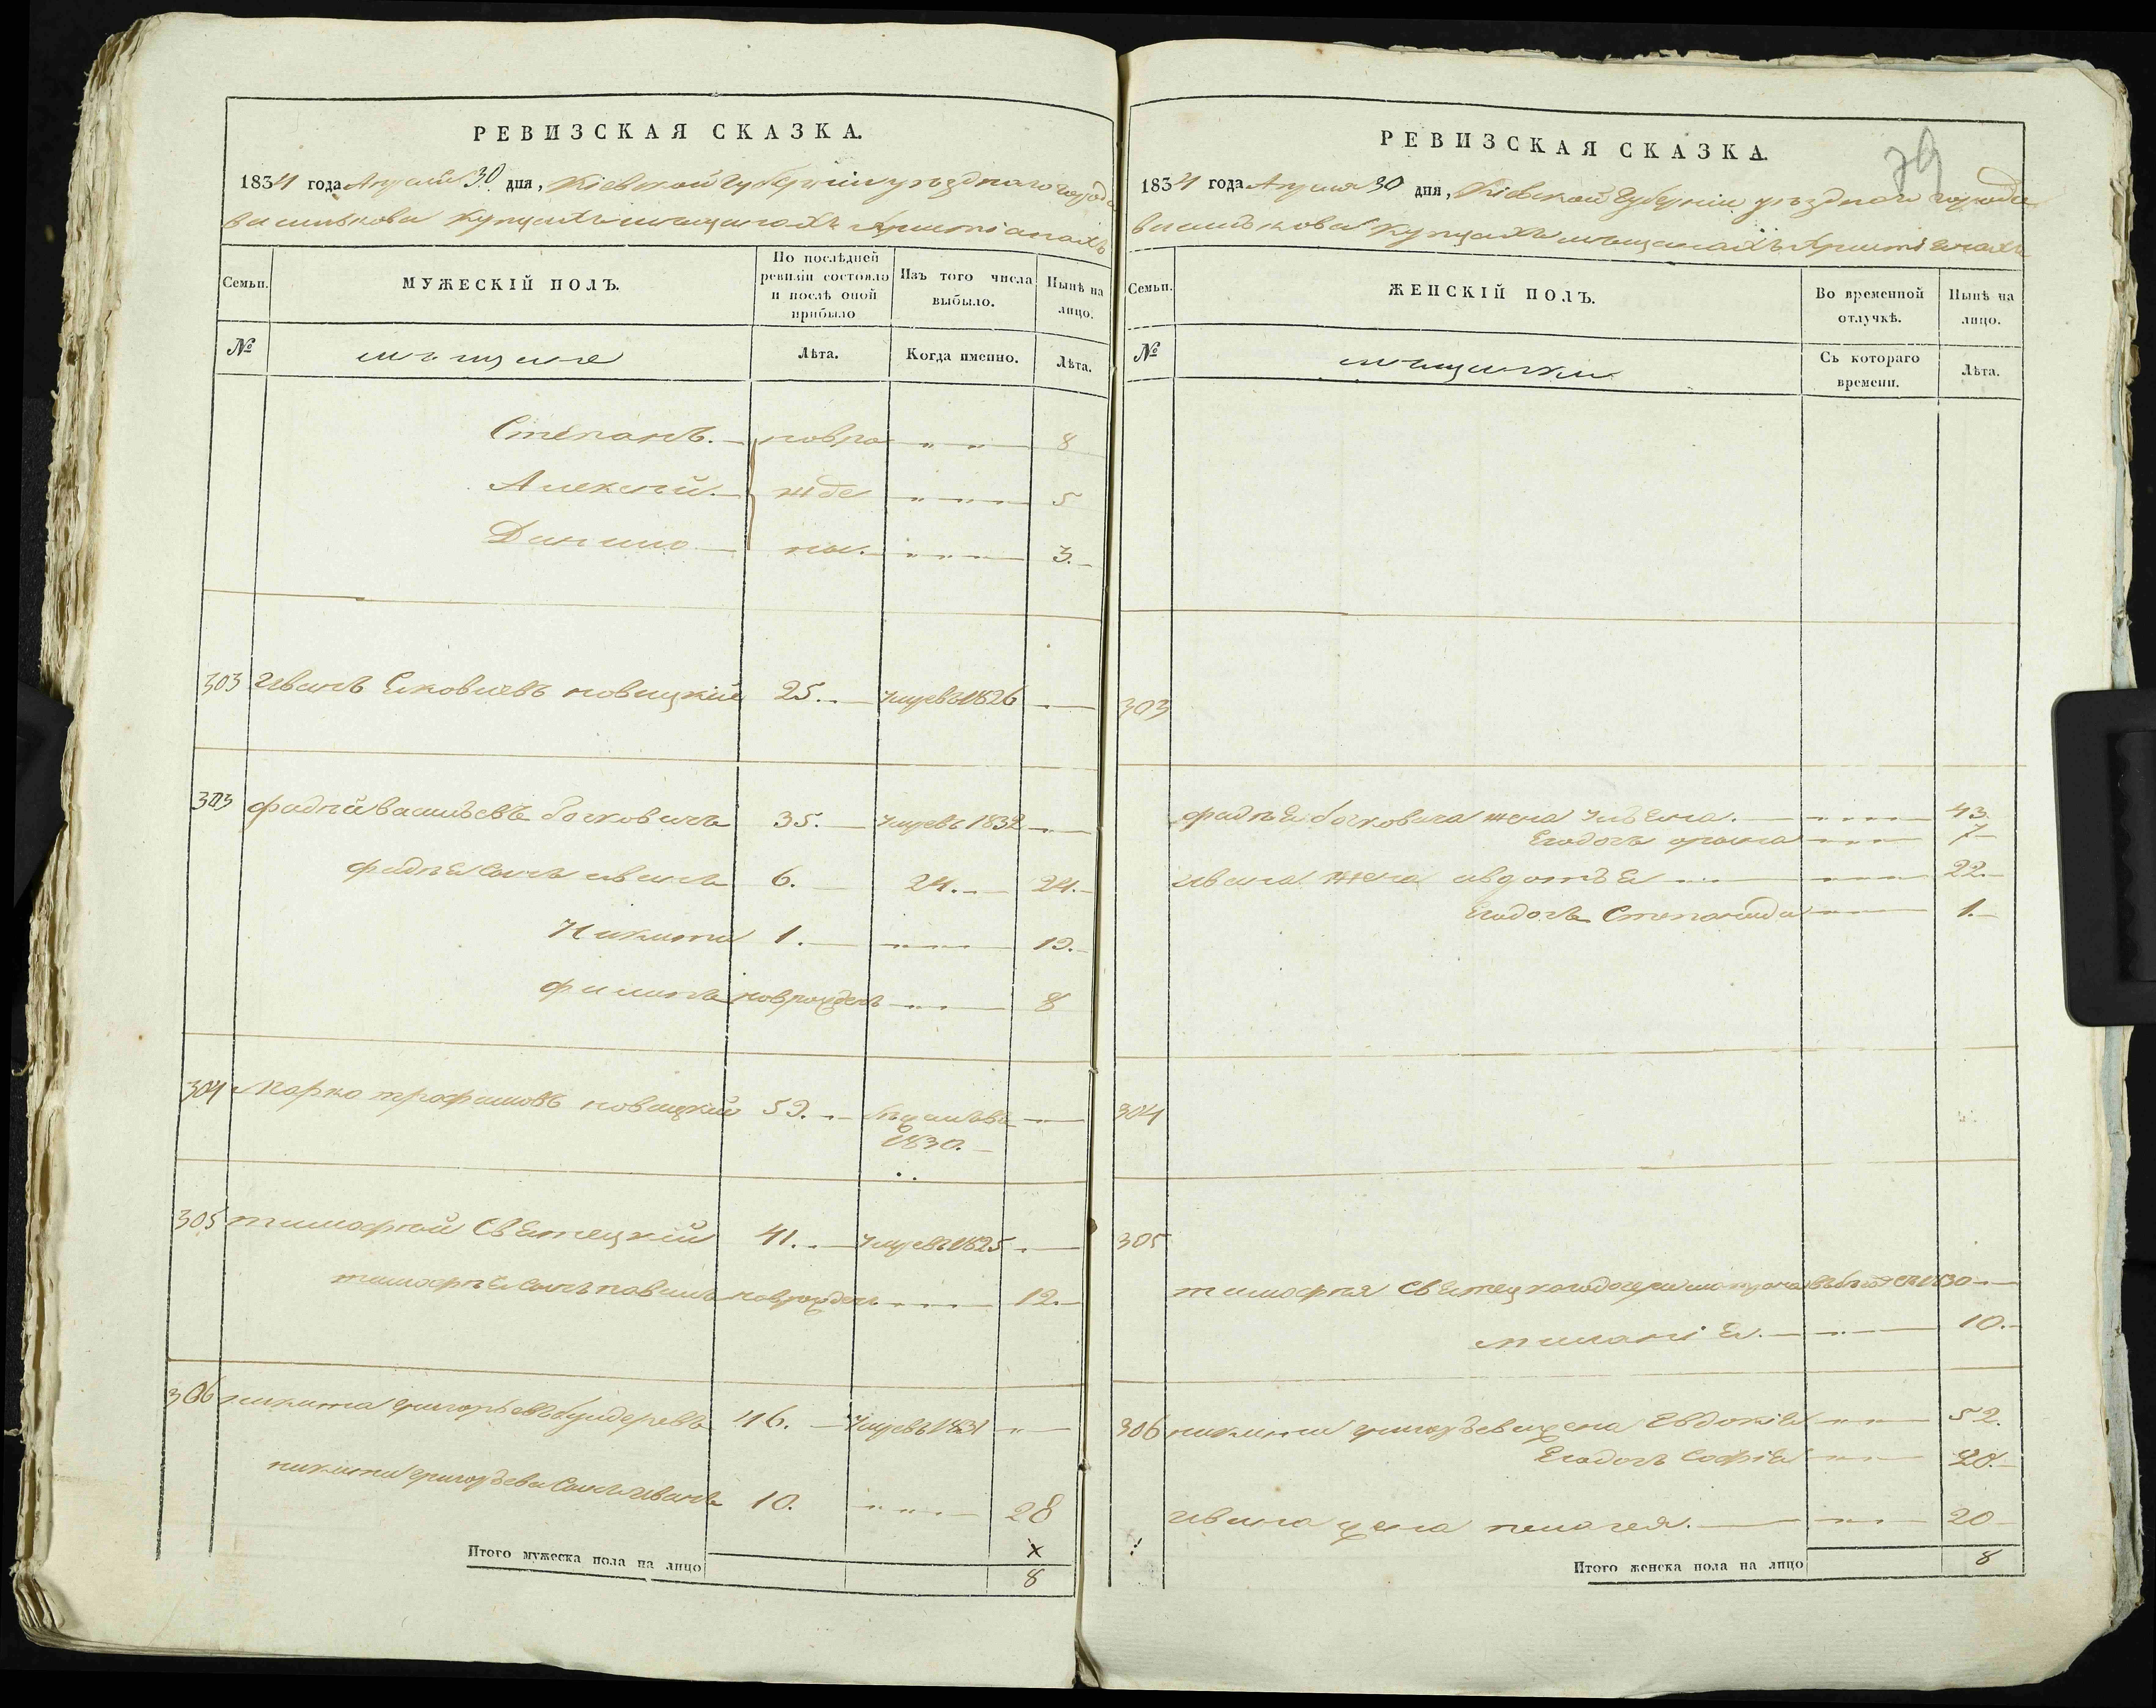 РЕВИЗСКАЯ СКАЗКА.
1834 года Апреля 30 дня, Кіевской Губерніи уѣзднаго города
василькова купцахъ мещанахъ христіанахъ
Семьи.
МУЖЕСКІЙ ПОЛЪ.
По послѣдней ревизіи состояло и послѣ оной прибыло
Изъ того числа выбыло.
Нынѣ на лицо.
№
мещане
Лѣта.
Когда именно.
Лѣта.
Степанъ. новро 8
Алексѣй. жде 5
Данило ны. 3.
303 Иванъ Яковлевъ новицкій 25. умревъ 1826
303 фадѣй васильевъ бочковичъ 35. умревъ 1832
фадѣя сынъ иванъ 6. 24. 24.
Никита 1. 19.
филипъ новрожденъ 8
304 Марко трофимовъ новицкій 59. 1830.
305 тимофѣй Святецкій 41. умревъ 1825
тимофѣя сынъ павелъ новрожденъ 12.
306 никита григорьевъ 46. умревъ 1831
никиты григорьева сынъ иванъ 10. 28
х
Итого мужеска пола на лицо 8
79
РЕВИЗСКАЯ СКАЗКА.
1834 года Апреля 30 дня, Кіевской Губерніи уѣзднаго города
василькова купцахъ мещанахъ христіанахъ
Семьи.
ЖЕНСКІЙ ПОЛЪ.
Во временной отлучкѣ.
Нынѣ на лицо.
№
мещанки
Съ котораго времени.
Лѣта.
303
фадѣя бочковича жена 43.
Егодочь орина 7
ивана жена авдотья 22.
Егодочь Степанида 1.
304
305
тимофѣя Святецкого дочери 1830
миланія. 10.
306 никиты григорьева жена Евдокія 52.
Егодочь Софія 20.
ивана жена пелагея. 20
Итого женска пола на лицо 8